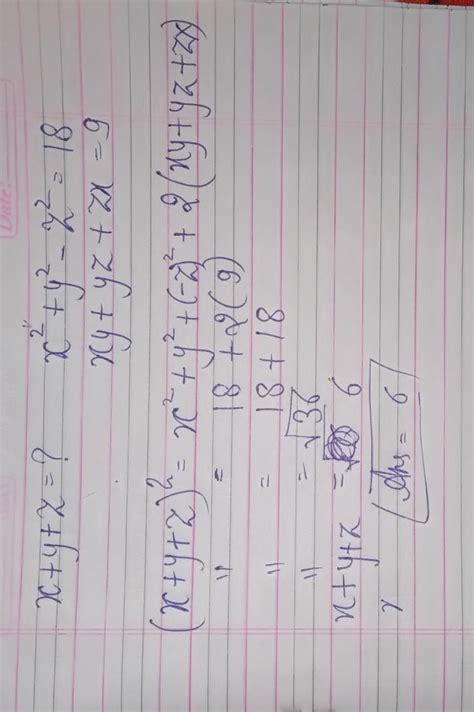 x+y+z=? x²+y²-z²=18
xy+yz+zx=9
(x+y+z)²=x²+y²+(-z)²+2(xy+yz+zx)
" = 18+2(9)
" = 18+18
" =√36
x+y+z = 6
Ans = 6